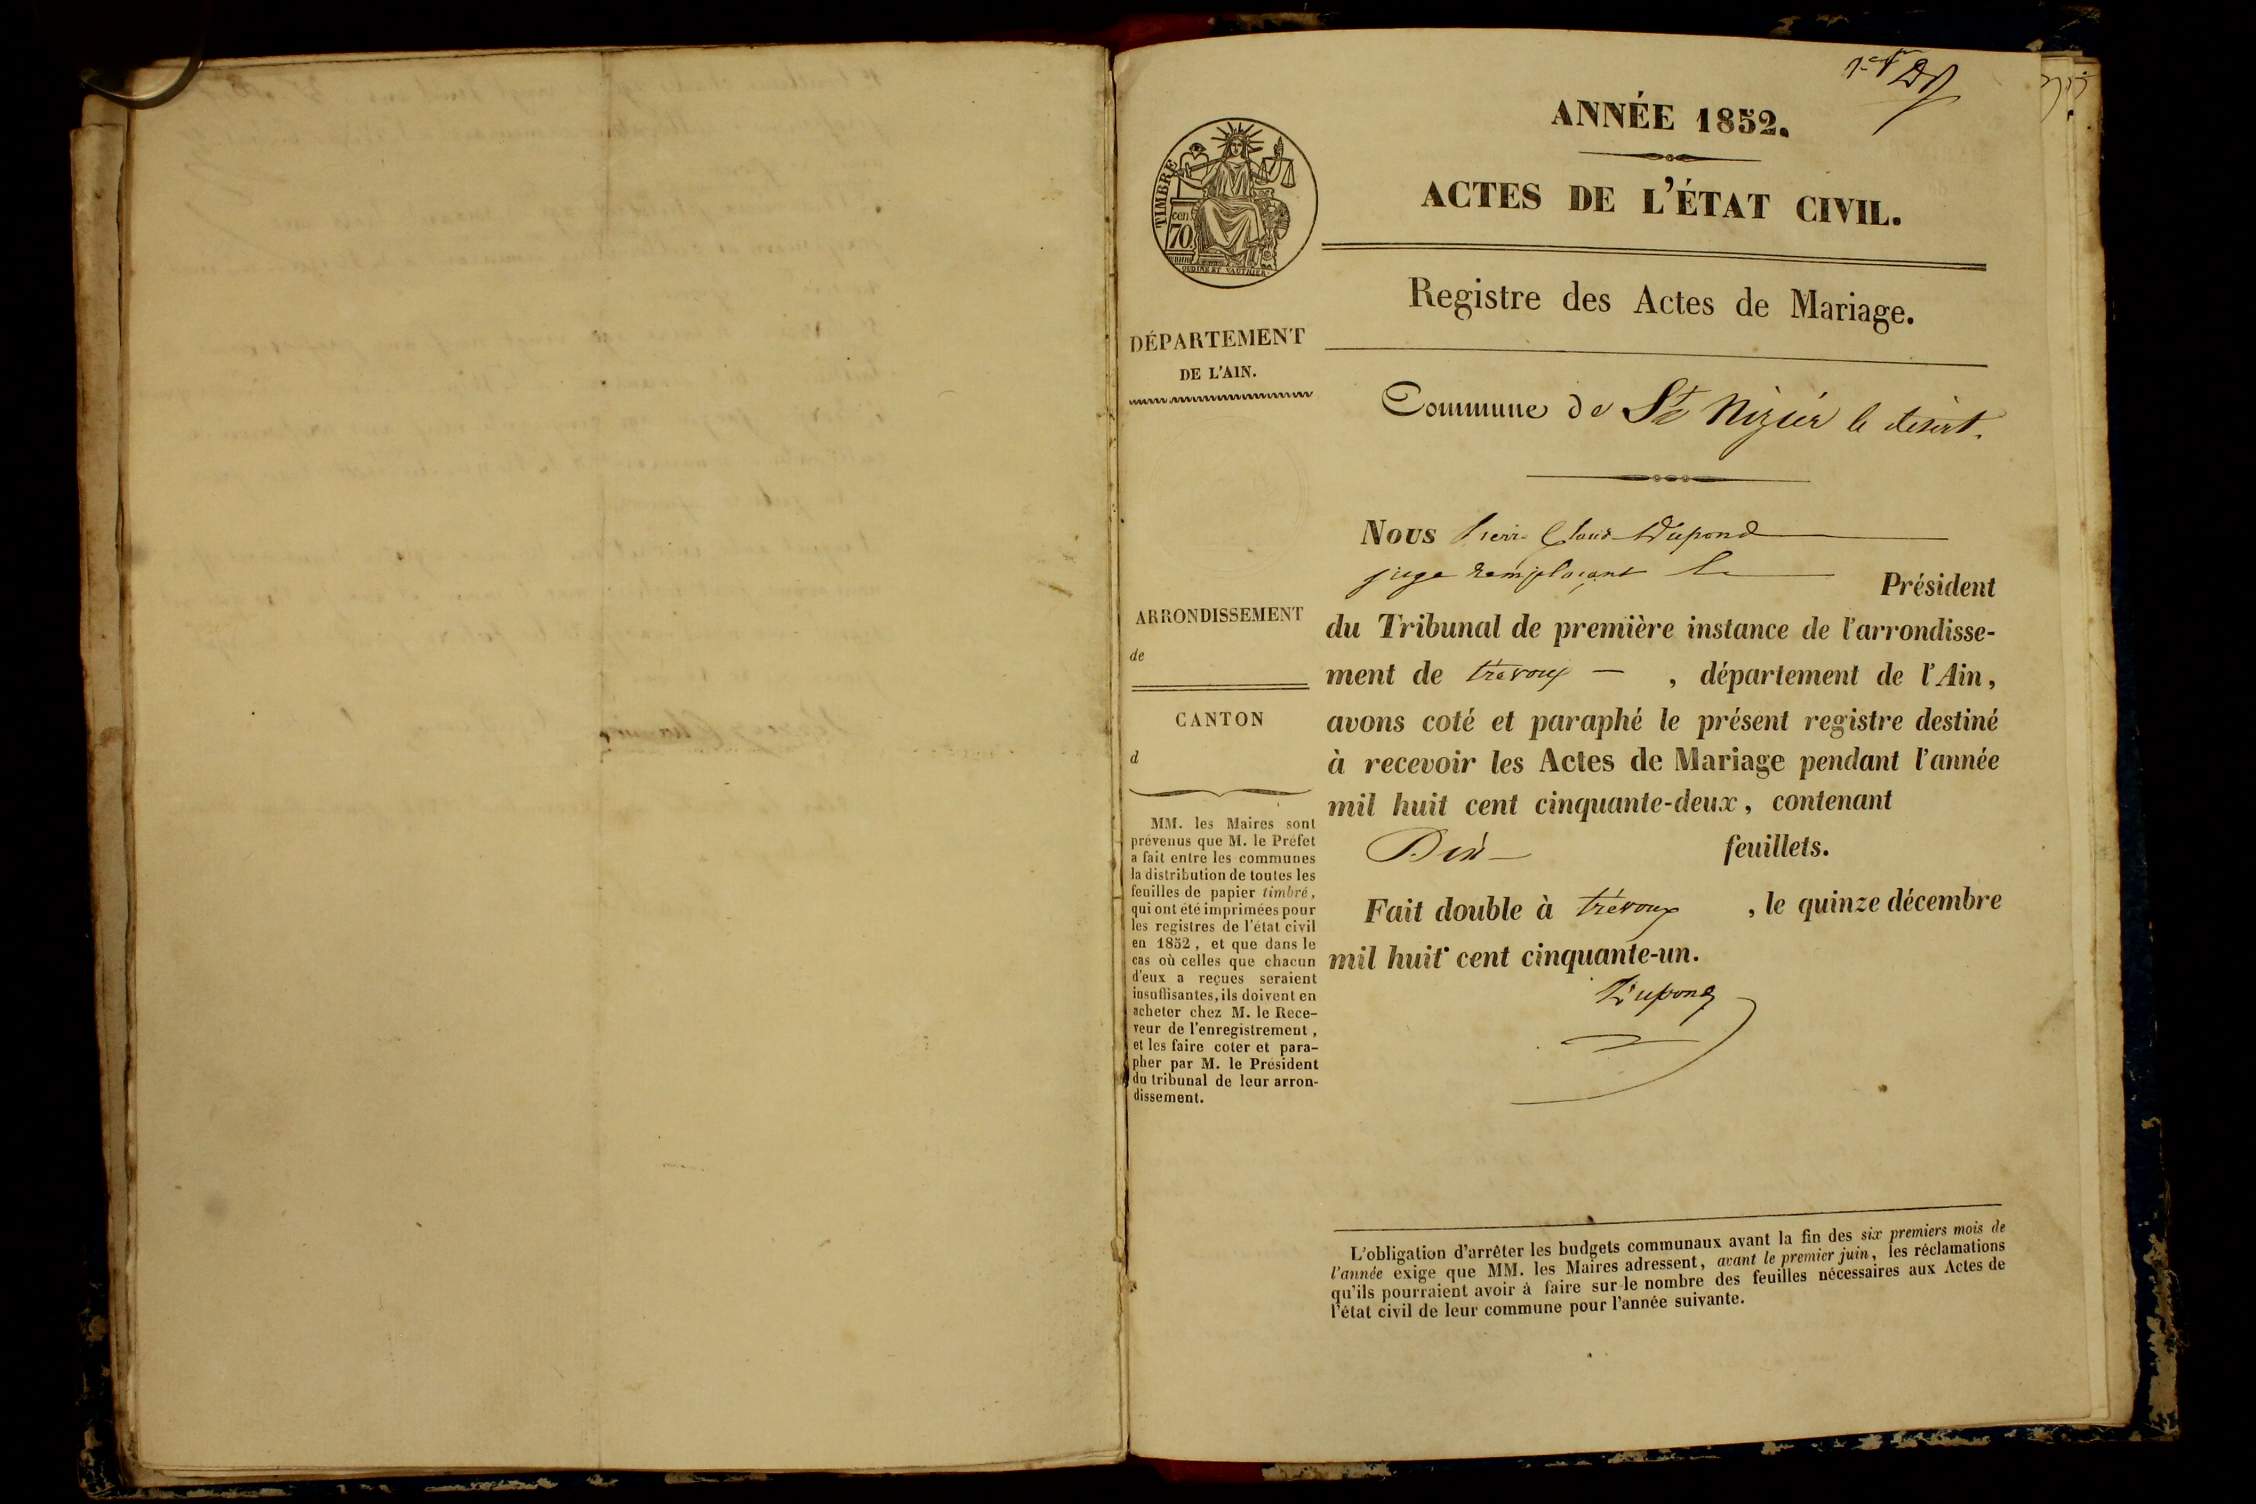 ANNÉE 1852.
ACTES DE L'ÉTAT CIVIL.
TIMBRE
cen.
70.
OUDINE ET VAUTHIER
Registre des Actes de Mariage.
DÉPARTEMENT
DE L'AIN.
Commune de St Nizier le désert.
Nous Pierre Claude Dupond
juge remplaçant le Président
du Tribunal de première instance de l'arrondisse-
ment de trévoux — , département de l'Ain,
avons coté et paraphé le présent registre destiné
à recevoir les Actes de Mariage pendant l'année
mil huit cent cinquante-deux, contenant
Dix — feuillets.
Fait double à trévoux , le quinze décembre
mil huit cent cinquante-un.
Dupond
ARRONDISSEMENT
de
CANTON
d
MM. les Maires sont
prévenus que M. le Préfet
a fait entre les communes
la distribution de toutes les
feuilles de papier timbré,
qui ont été imprimées pour
les registres de l'état civil
en 1852, et que dans le
cas où celles que chacun
d'eux a reçues seraient
insuffisantes, ils doivent en
acheter chez M. le Rece-
veur de l'enregistrement,
et les faire coter et para-
pher par M. le Président
du tribunal de leur arron-
dissement.
L'obligation d'arrêter les budgets communaux avant la fin des six premiers mois de
l'année exige que MM. les Maires adressent, avant le premier juin, les réclamations
qu'ils pourraient avoir à faire sur le nombre des feuilles nécessaires aux Actes de
l'état civil de leur commune pour l'année suivante.